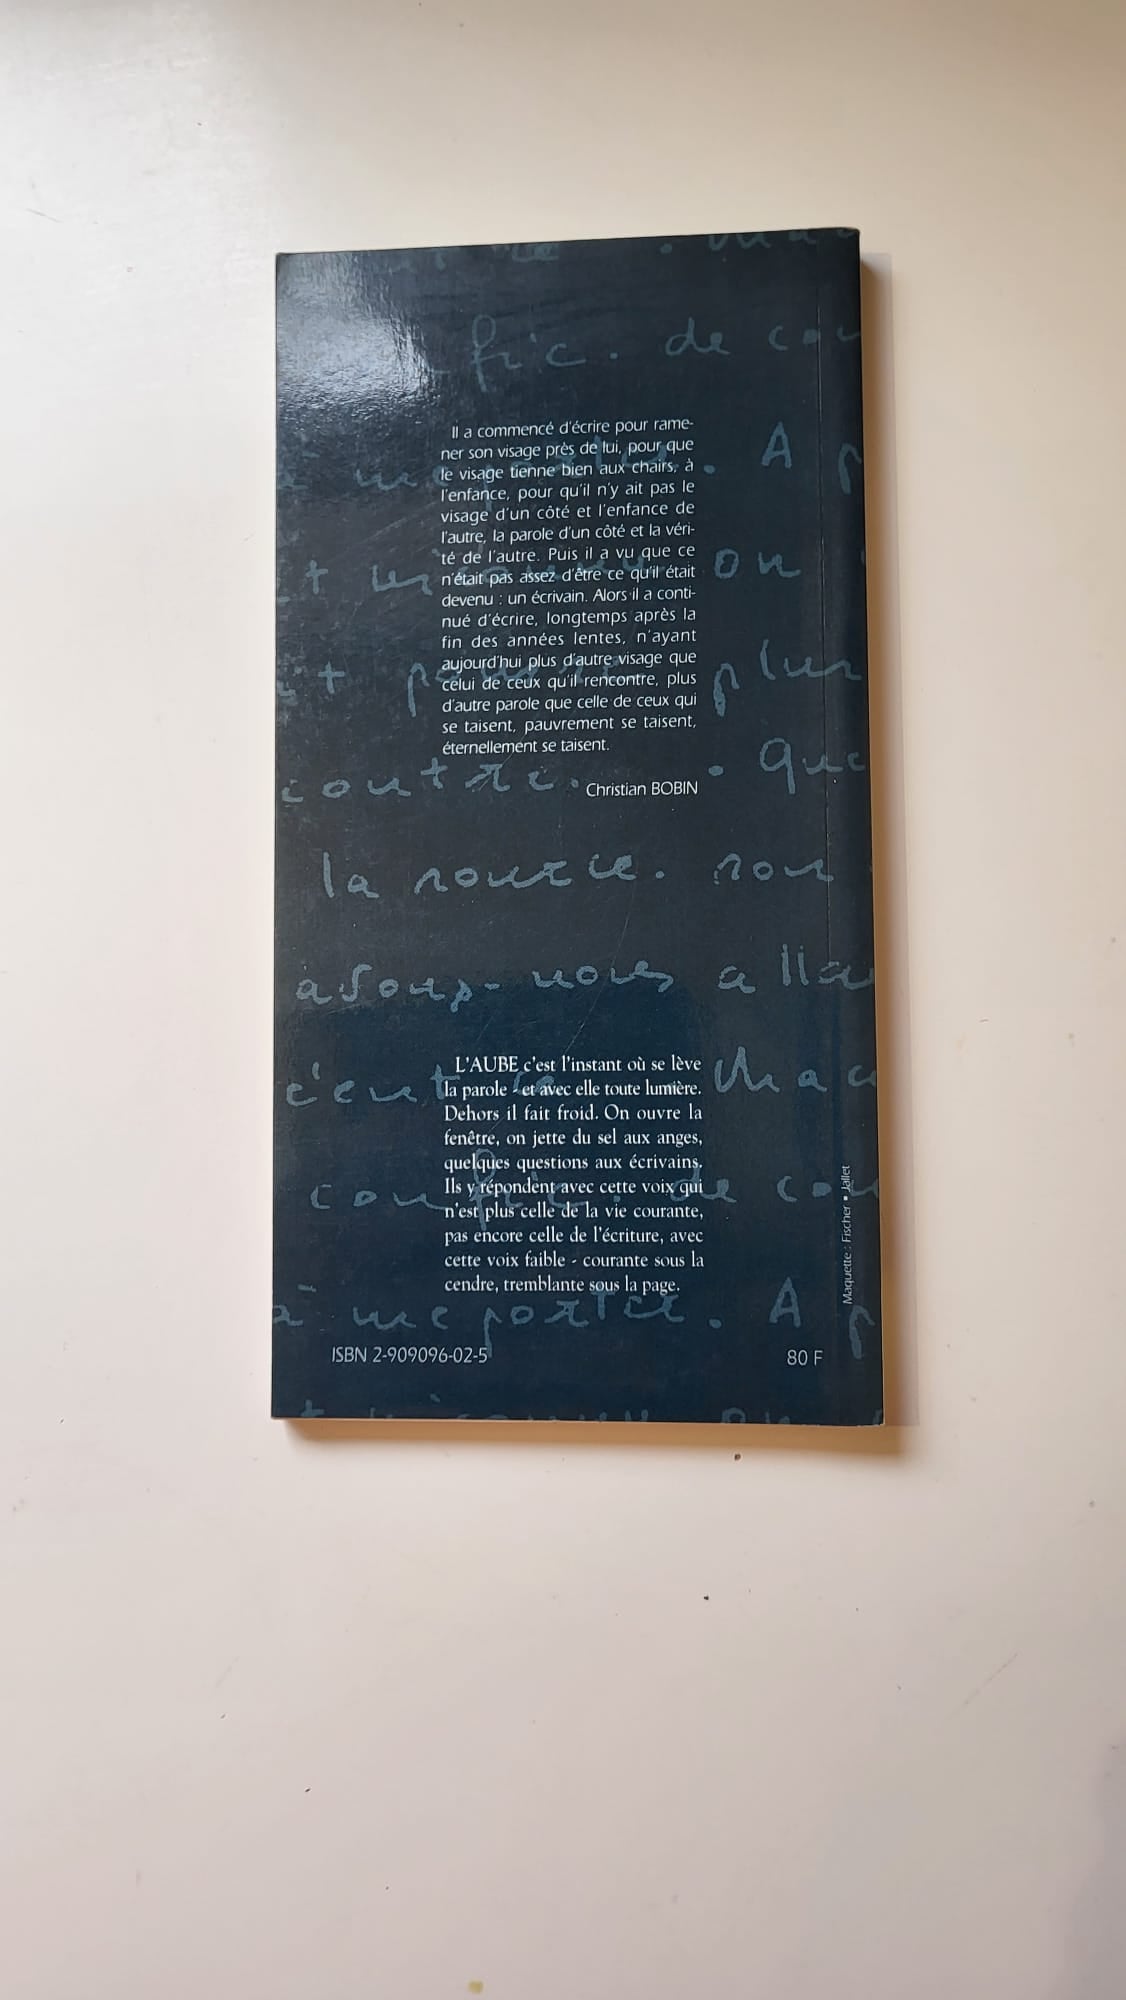 fric. de cou
Il a commencé d'écrire pour rame-
ner son visage près de lui, pour que
le visage tienne bien aux chairs, à
l'enfance, pour qu'il n'y ait pas le
visage d'un côté et l'enfance de
l'autre, la parole d'un côté et la véri-
té de l'autre. Puis il a vu que ce
n'était pas assez d'être ce qu'il était
devenu : un écrivain. Alors il a conti-
nué d'écrire, longtemps après la
fin des années lentes, n'ayant
aujourd'hui plus d'autre visage que
celui de ceux qu'il rencontre, plus
d'autre parole que celle de ceux qui
se taisent, pauvrement se taisent,
éternellement se taisent.
Christian BOBIN
la source.
L'AUBE c'est l'instant où se lève
la parole - et avec elle toute lumière.
Dehors il fait froid. On ouvre la
fenêtre, on jette du sel aux anges,
quelques questions aux écrivains.
Ils y répondent avec cette voix qui
n'est plus celle de la vie courante,
pas encore celle de l'écriture, avec
cette voix faible - courante sous la
cendre, tremblante sous la page.
Maquette : Fischer • Jallet
ISBN 2-909096-02-5
80 F